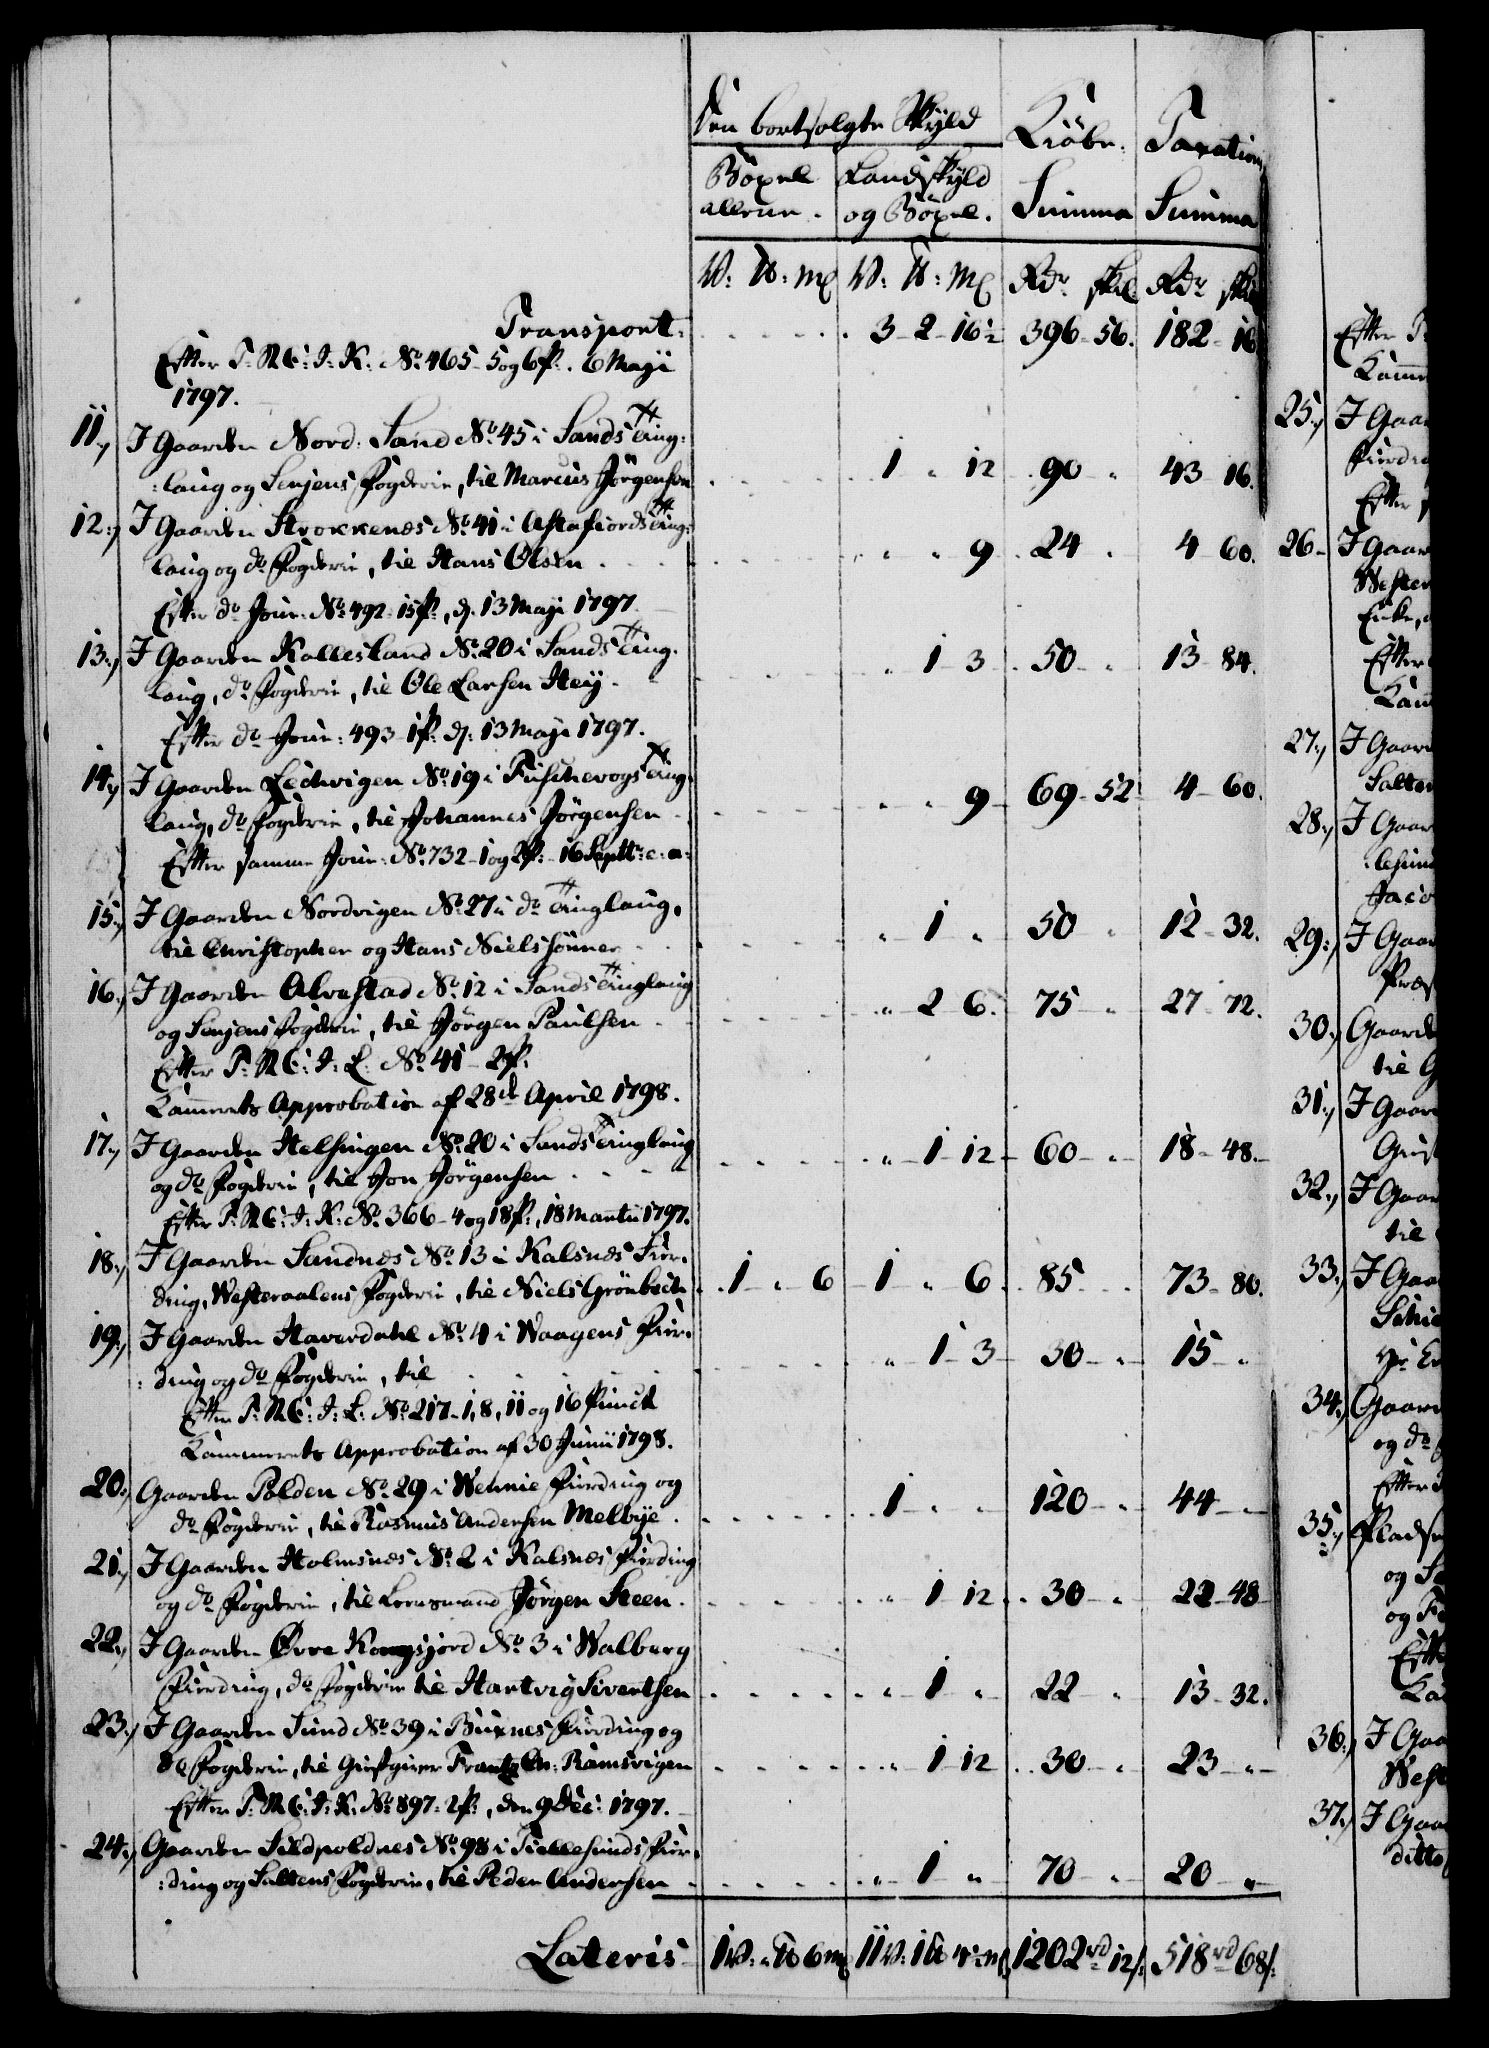 Den bortsolgte Skyld
Kiöbe-
Taxations
Böxel
Landskyld
allene.
og Böxel.
Summa
Summa
V: ℔: Mk
V: ℔: Mk
Rdr. skil
Rdr. skil
Transport: 3-2-16½ 396-56. 182-16
Efter T: R C: J: K. No. 465-5 og 6 p. 6 Maji
1797.
11.) I Gaarden Nord: Sand No. 45 i Sands Ting-
:laug og Senjens Fogderie, til Marcus Jörgensen 1 „ 12 90 „ 43-16.
12.) I Gaarden Strokkenæs No. 41 i Astafiords Ting-
laug og do. Fogderie, til Hans Olsen „ „ 9 24 „ 4 60.
Efter do. Jour: No. 492-15 p., d. 13 Maji 1797
13.) I Gaarden Kallesland No. 20 i Sands Ting-
laug, do. Fogderie, til Ole Larsen Heij „ 1-3 50 „ 13-84.
Efter do. Jour: 493-1 p. d. 13 Maji 1797.
14.) I Gaarden Ledvigen No. 19 i Fuschevogs Ting-
laug, do. Fogderie, til Johannes Jörgensen „ „ 9 69-52 4-60.
Efter samme Jour: No. 732-1 og 2 p: 16 Septr: e: a:
15.) I Gaarden Nordvigen No. 27 i do. Tinglaug,
til Christopher og Hans Nielssönner „ 1 „ 50 „ 12-32.
16.) I Gaarden Alvestad No. 12 i Sands Tinglaug
og Senjens Fogderie, til Jörgen Paulsen „ 2 6. 75 „ 27-72.
Efter T: R C: J: L: No. 41-2 p.
Kammerets Approbation af 28de April 1798.
17.) I Gaarden Helsingen No. 20 i Sands Tinglaug
og do. Fogderie, til Jon Jörgensen „ 1-12 60 „ 18-48.
Efter T: R C: J: K: No. 366-4 og 18 p., 18 Martii 1797.
18.) I Gaarden Sandnes No. 13 i Kalsnes Fier-
ding, Westeraalens Fogderie, til Niels Grönbech 1 „ 6 1 „ 6 85 73-80.
19.) I Gaarden Haverdahl No. 4 i Waagens Fier-
:ding og do. Fogderie, til „ 1-3 30 „ 15 „
Efter T: R C: J: L: No. 217-1, 8, 11 og 16 Punct
Kammerets Approbation af 30 Junii 1798.
20.) Gaarden Polden No. 29 i Wennie Fierding og
do. Fogderie, til Rasmus Andersen Melbye 1 „ „ 120 „ 44 „
21.) I Gaarden Holmsnes No. 2 i Kalsnes Fierding
og do. Fogderie, til Lensmand Jörgen Steen. „ 1 12 30 „ 22-48
22.) I Gaarden Øvre Kongsjord No. 3 i Walberg
Fierding, do. Fogderie til Hartvig Sivertsen „ 1 „ 22 „ 13-32.
23.) I Gaarden Sund No. 39 i Buxnes Fierding og
do Fogderie, til Giestgiver Frantz Chr: Ramsvigen „ 1 12 30 „ 23 „
Efter T: R C: J: K: No. 897-2 p., den 9 Dec: 1797.
24.) Gaarden Sildpoldnes No. 98 i Gillesunds Fier-
:ding og Saltens Fogderie, til Peder Andersen „ 1 „ 70 „ 20 „
Lateris 1 V: „ ℔ 6 Mk 11 V: 1 ℔ 4½ Mk 1202rd 12/: 518rd 68/:
Efter T:
Kamm
25.) I Gaar
Fierdin
Efter
26- I Gaar
Wester
Enke,
Efter
Kam
27.) I Gaar
Salten
28.) I Gaar
:lesund
Jaco
29.) I Gaar
Præs
30.) Gaarde
til G
31.) I Gaar
Gies
32.) I Gaar
til
33.) I Gaa
Schie
Hr: E
34.) Gaar
og do.
Efter
35.) Pladsen
og Sa
og F
Efte
Ka
36.) I Gaa
West
37.) I Gaa
ditto